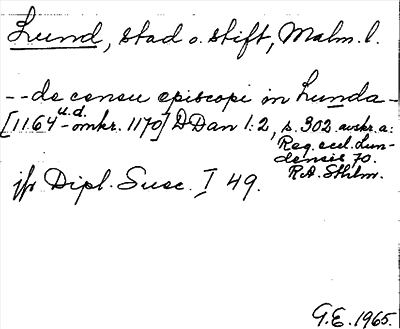 Lund, stad o. stift, Malm. l.
-- de censu episcopi in Lunda -
[1164 u.d. - omkr. 1170] DDan 1:2, s. 302. avskr. a:
Reg. eccl. Lun-
densis 70.
RA. Sthlm.
jfr Dipl. Suec. I 49.
G.E. 1965.